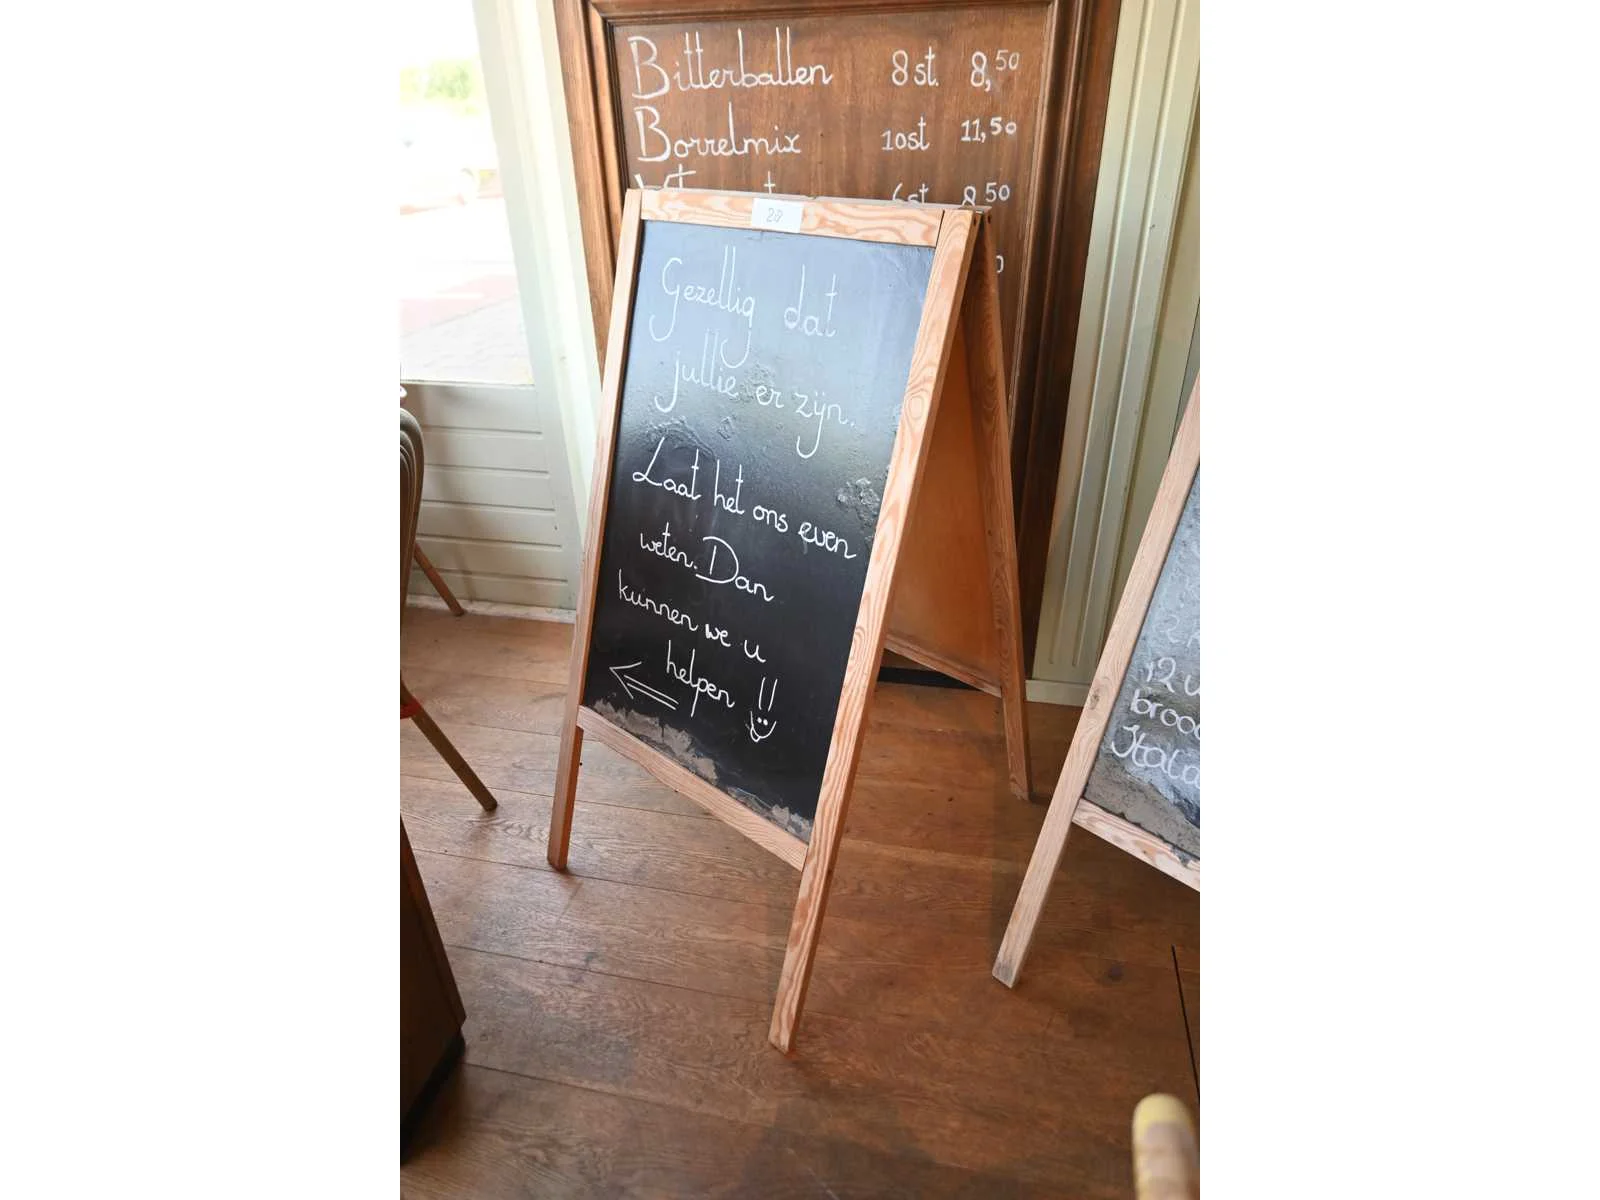 Bitterballen 8 st. 8,50
Borrelmix 10st 11,50
6st 8,50
Gezellig dat
jullie er zijn.
Laat het ons even
weten. Dan
kunnen we u
helpen !!
broo
Itala